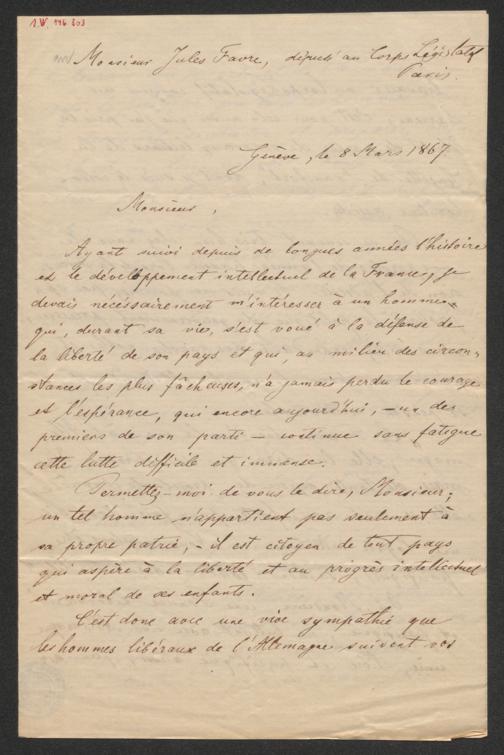 Monsieur Jules Favre, député au Corps Législatif
Paris.
Genève, le 8 Mars 1867
Monsieur,
Ayant suivi depuis de longues années l'histoire
et le développement intellectuel de la France, je
devais nécessairement m'intéresser à un homme
qui, durant sa vie, s'est voué à la défense de
la liberté de son pays et qui, au milieu des circon-
stances les plus fâcheuses, n'a jamais perdu le courage
et l'espérance, qui encore aujourd'hui, – un des
premiers de son parti – continue sans fatigue
cette lutte difficile et immense.
Permettez-moi de vous le dire, Monsieur,
un tel homme n'appartient pas seulement à
sa propre patrie, – il est citoyen de tout pays
qui aspère à la liberté et au progrès intellectuel
et moral de ses enfants.
C'est donc avec une vive sympathie que
les hommes libéraux de l'Allemagne suivent vos